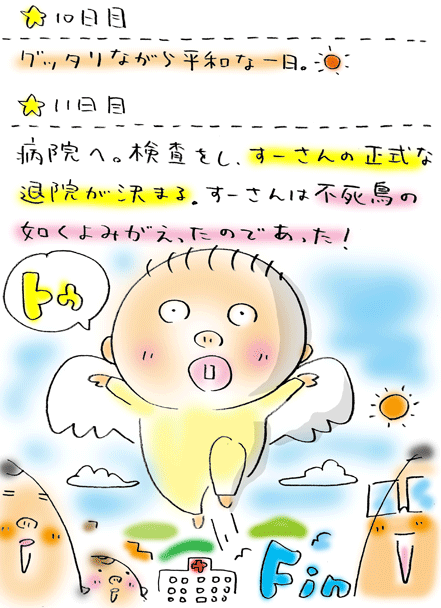 10日目
グッタリながら平和な一日。
11日目
病院へ。検査をし、すーさんの正式な
退院が決まる。すーさんは不死鳥の
如くよみがえったのであった！
トゥ
Fin